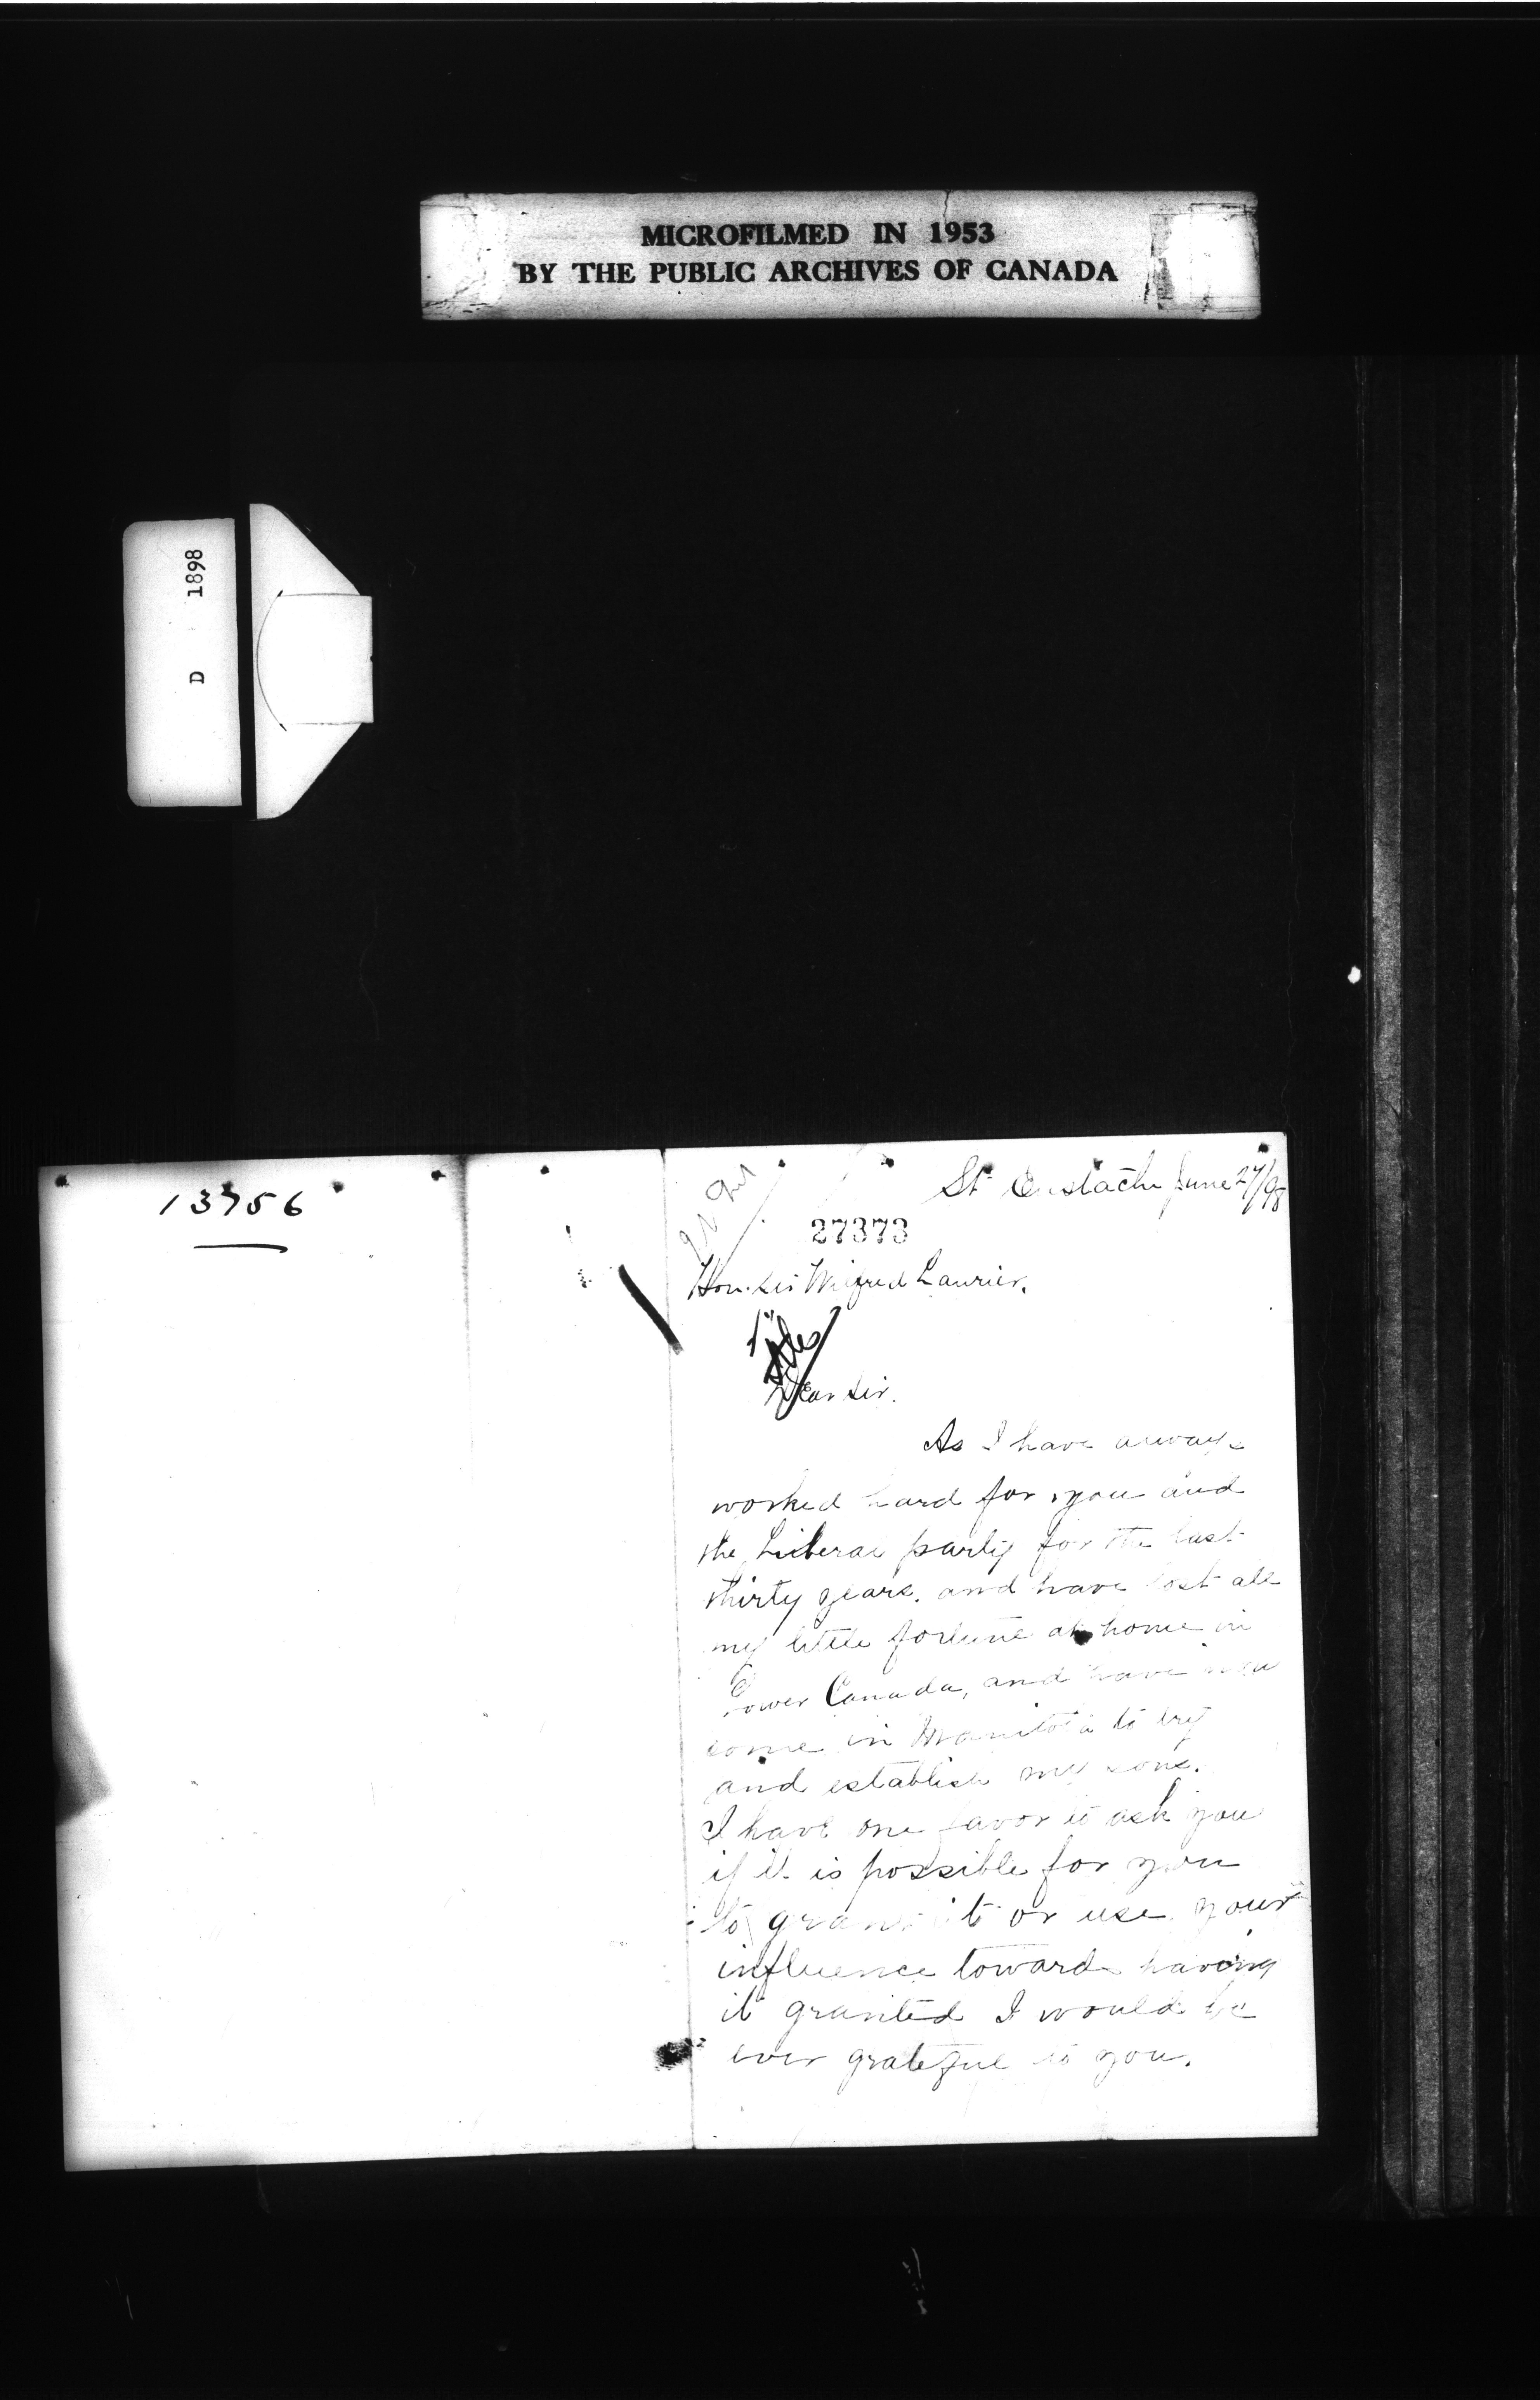 MICROFILMED IN 1953
BY THE PUBLIC ARCHIVES OF CANADA
D 1898
13756
St Eustache June 27/98
27373
Hon. Sir Wilfred Laurier.
Dear Sir.
As I have always
worked hard for you and
the Liberal party for the last
thirty years, and have lost all
my little fortune at home in
Lower Canada, and have now
come in Manitoba to try
and establish my sons.
I have one favor to ask you
if it is possible for you
to grant it or use your
influence towards having
it granted I would be
ever grateful to you.